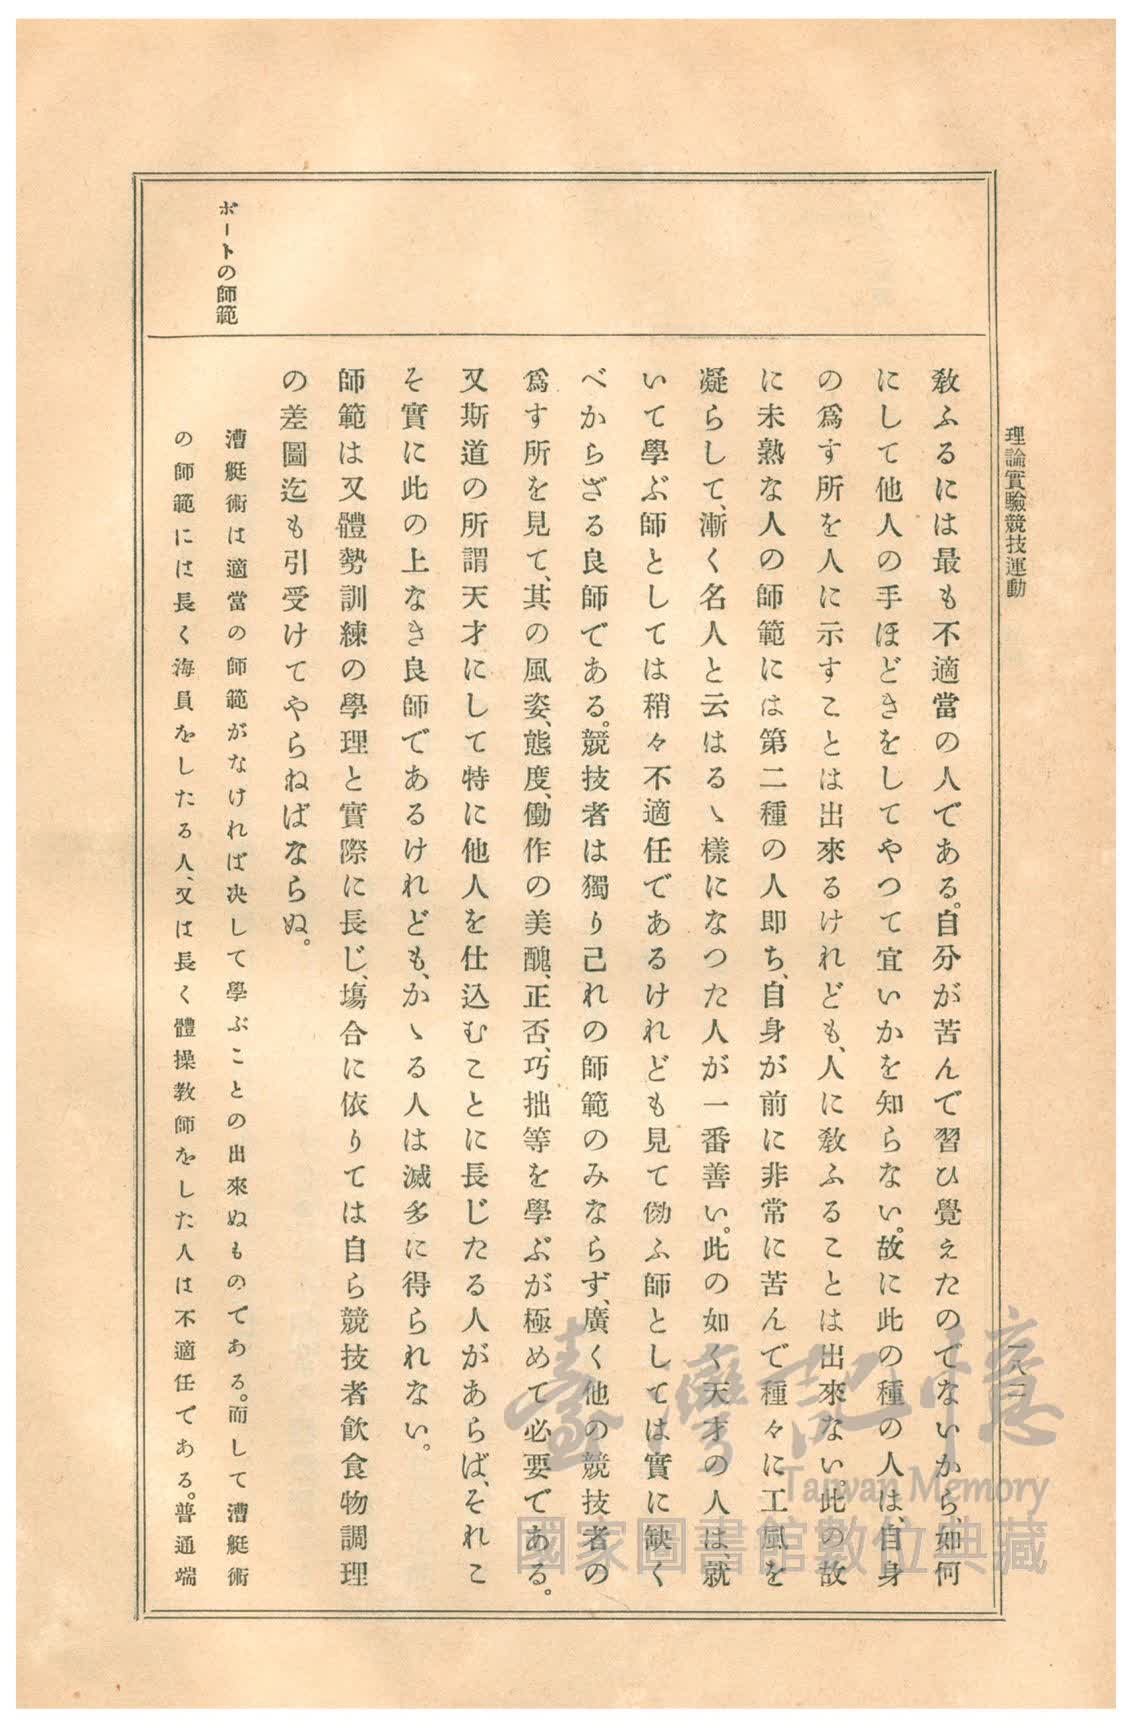 理論實驗競技運動
敎ふるには最も不適當の人である。自分が苦んで習ひ覺えたのでないから、如何
にして他人の手ほどきをしてやつて宜いかを知らない。故に此の種の人は、自身
の爲す所を人に示すことは出來るけれども、人に敎ふることは出來ない。此の故
に未熟な人の師範には第二種の人卽ち、自身が前に非常に苦んで種々に工風を
凝らして、漸く名人と云はるゝ樣になつた人が一番善い。此の如く天才の人は、就
いて學ぶ師としては稍々不適任であるけれども見て傚ふ師としては實に缺く
べからざる良師である。競技者は獨り己れの師範のみならず、廣く他の競技者の
爲す所を見て、其の風姿、態度、働作の美醜、正否、巧拙等を學ぶが極めて必要である。
又斯道の所謂天才にして特に他人を仕込むことに長じたる人があらば、それこ
そ實に此の上なき良師であるけれども、かゝる人は滅多に得られない。
師範は又體勢訓練の學理と實際に長じ、塲合に依りては自ら競技者飮食物調理
の差圖迄も引受けてやらねばならぬ。
ボートの師範
漕艇術は適當の師範がなければ決して學ぶことの出來ぬものである。而して漕艇術
の師範には長く海員をしたる人、又は長く體操教師をした人は不適任である。普通端
臺灣記憶
Taiwan Memory
國家圖書館數位典藏